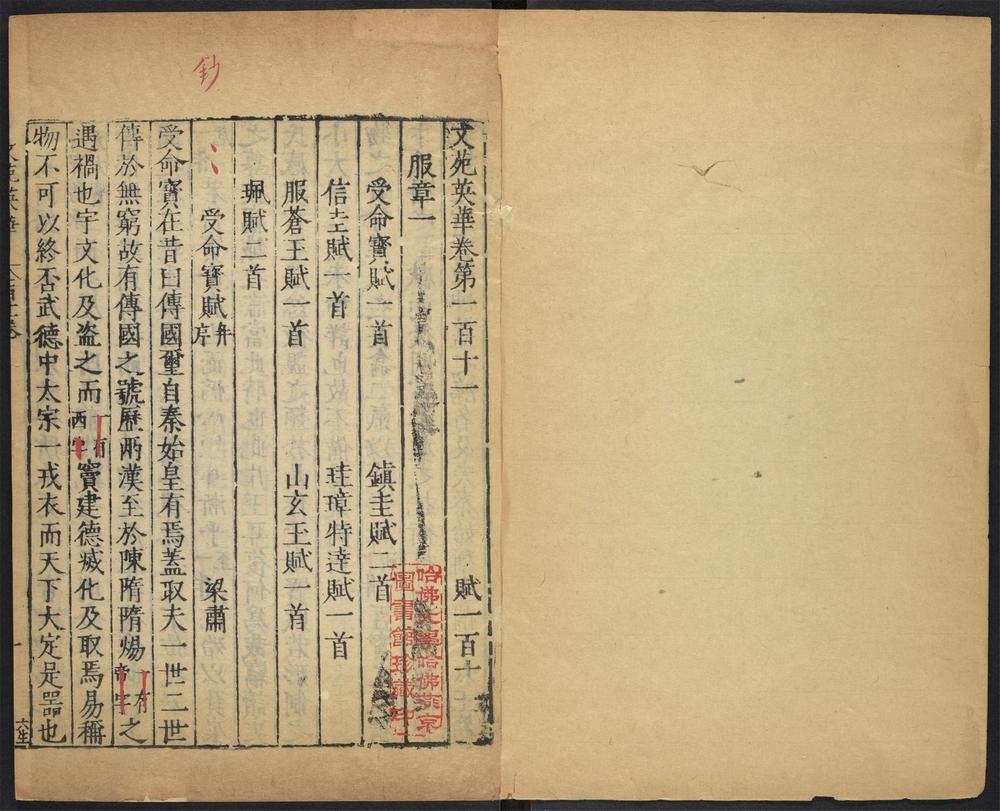 鈔
文苑英華卷第一百十一 賦一百十一
服章一
受命寶賦一首 鎮圭賦二首
信圭賦一首 珪璋特達賦一首
服蒼玉賦一首 山玄玉賦一首
珮賦二首
受命寶賦并序 梁肅
受命寶在昔曰傳國璽自秦始皇有焉蓋取夫一世二世
傳於無窮故有傳國之號歷兩漢至於陳隋隋煬一有帝字之
遇禍也宇文化及盗之而一有西字竇建德滅化及取焉易稱
物不可以終否武德中太宗一戎衣而天下大定是器也
哈佛大學哈佛燕京
圖書館珍藏印